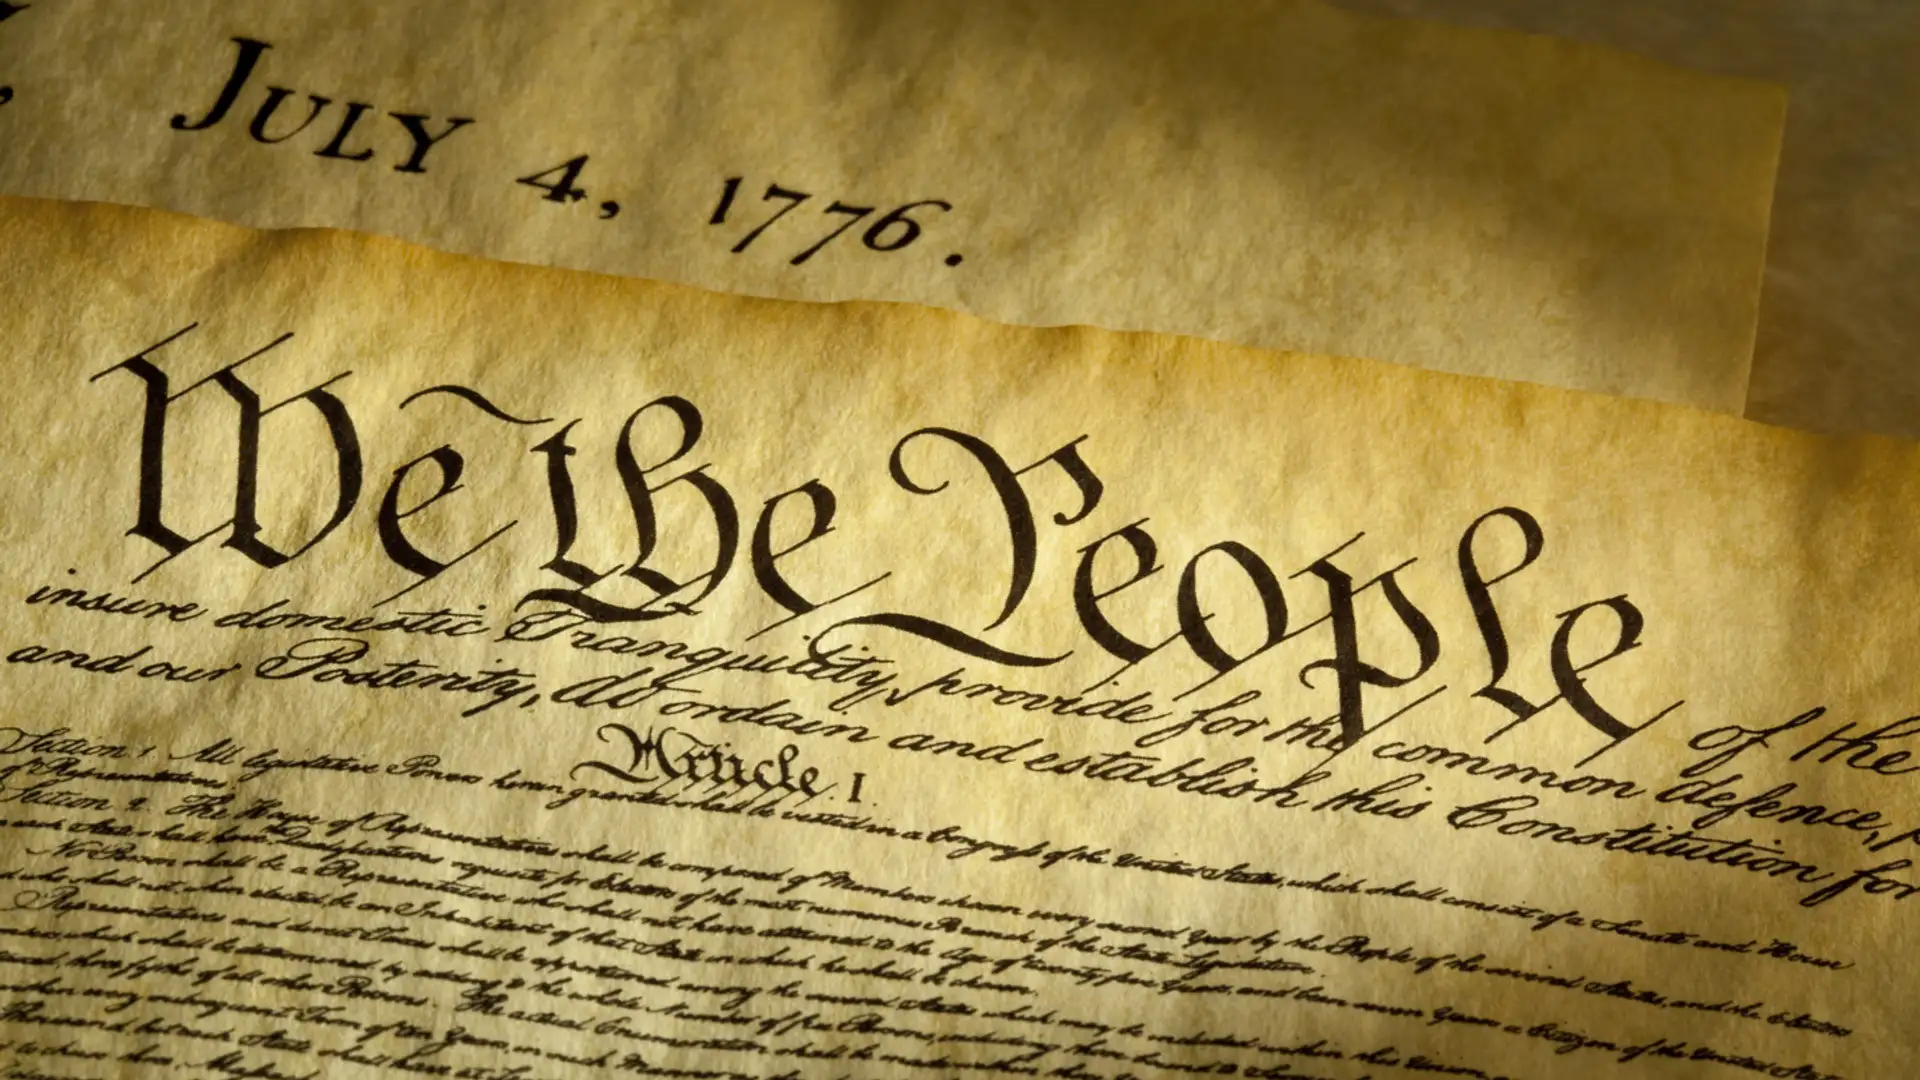 JULY 4, 1776.
We the People of the
insure domestic Tranquility, provide for the common defence,
and our Posterity, do ordain and establish this Constitution for
Article. I.
Section 1. All legislative Powers herein granted shall be vested in a Congress of the United States, which shall consist of a Senate and House
of Representatives.
Section 2. The House of Representatives shall be composed of Members chosen every second Year by the People of the several States, and the Electors
in each State shall have the Qualifications requisite for Electors of the most numerous Branch of the State Legislature.
No Person shall be a Representative who shall not have attained to the Age of twenty five Years, and been seven Years a Citizen of the United States,
and who shall not, when elected, be an Inhabitant of that State in which he shall be chosen.
Representatives and direct Taxes shall be apportioned among the several States which may be included within this Union,
which shall be determined by adding to the whole Number of free Persons, including those bound to
three fifths of all other Persons. The actual Enumeration shall be made within three
within every subsequent Term of ten Years, in such Manner as
Thousand, but each State shall have at
to chuse three,